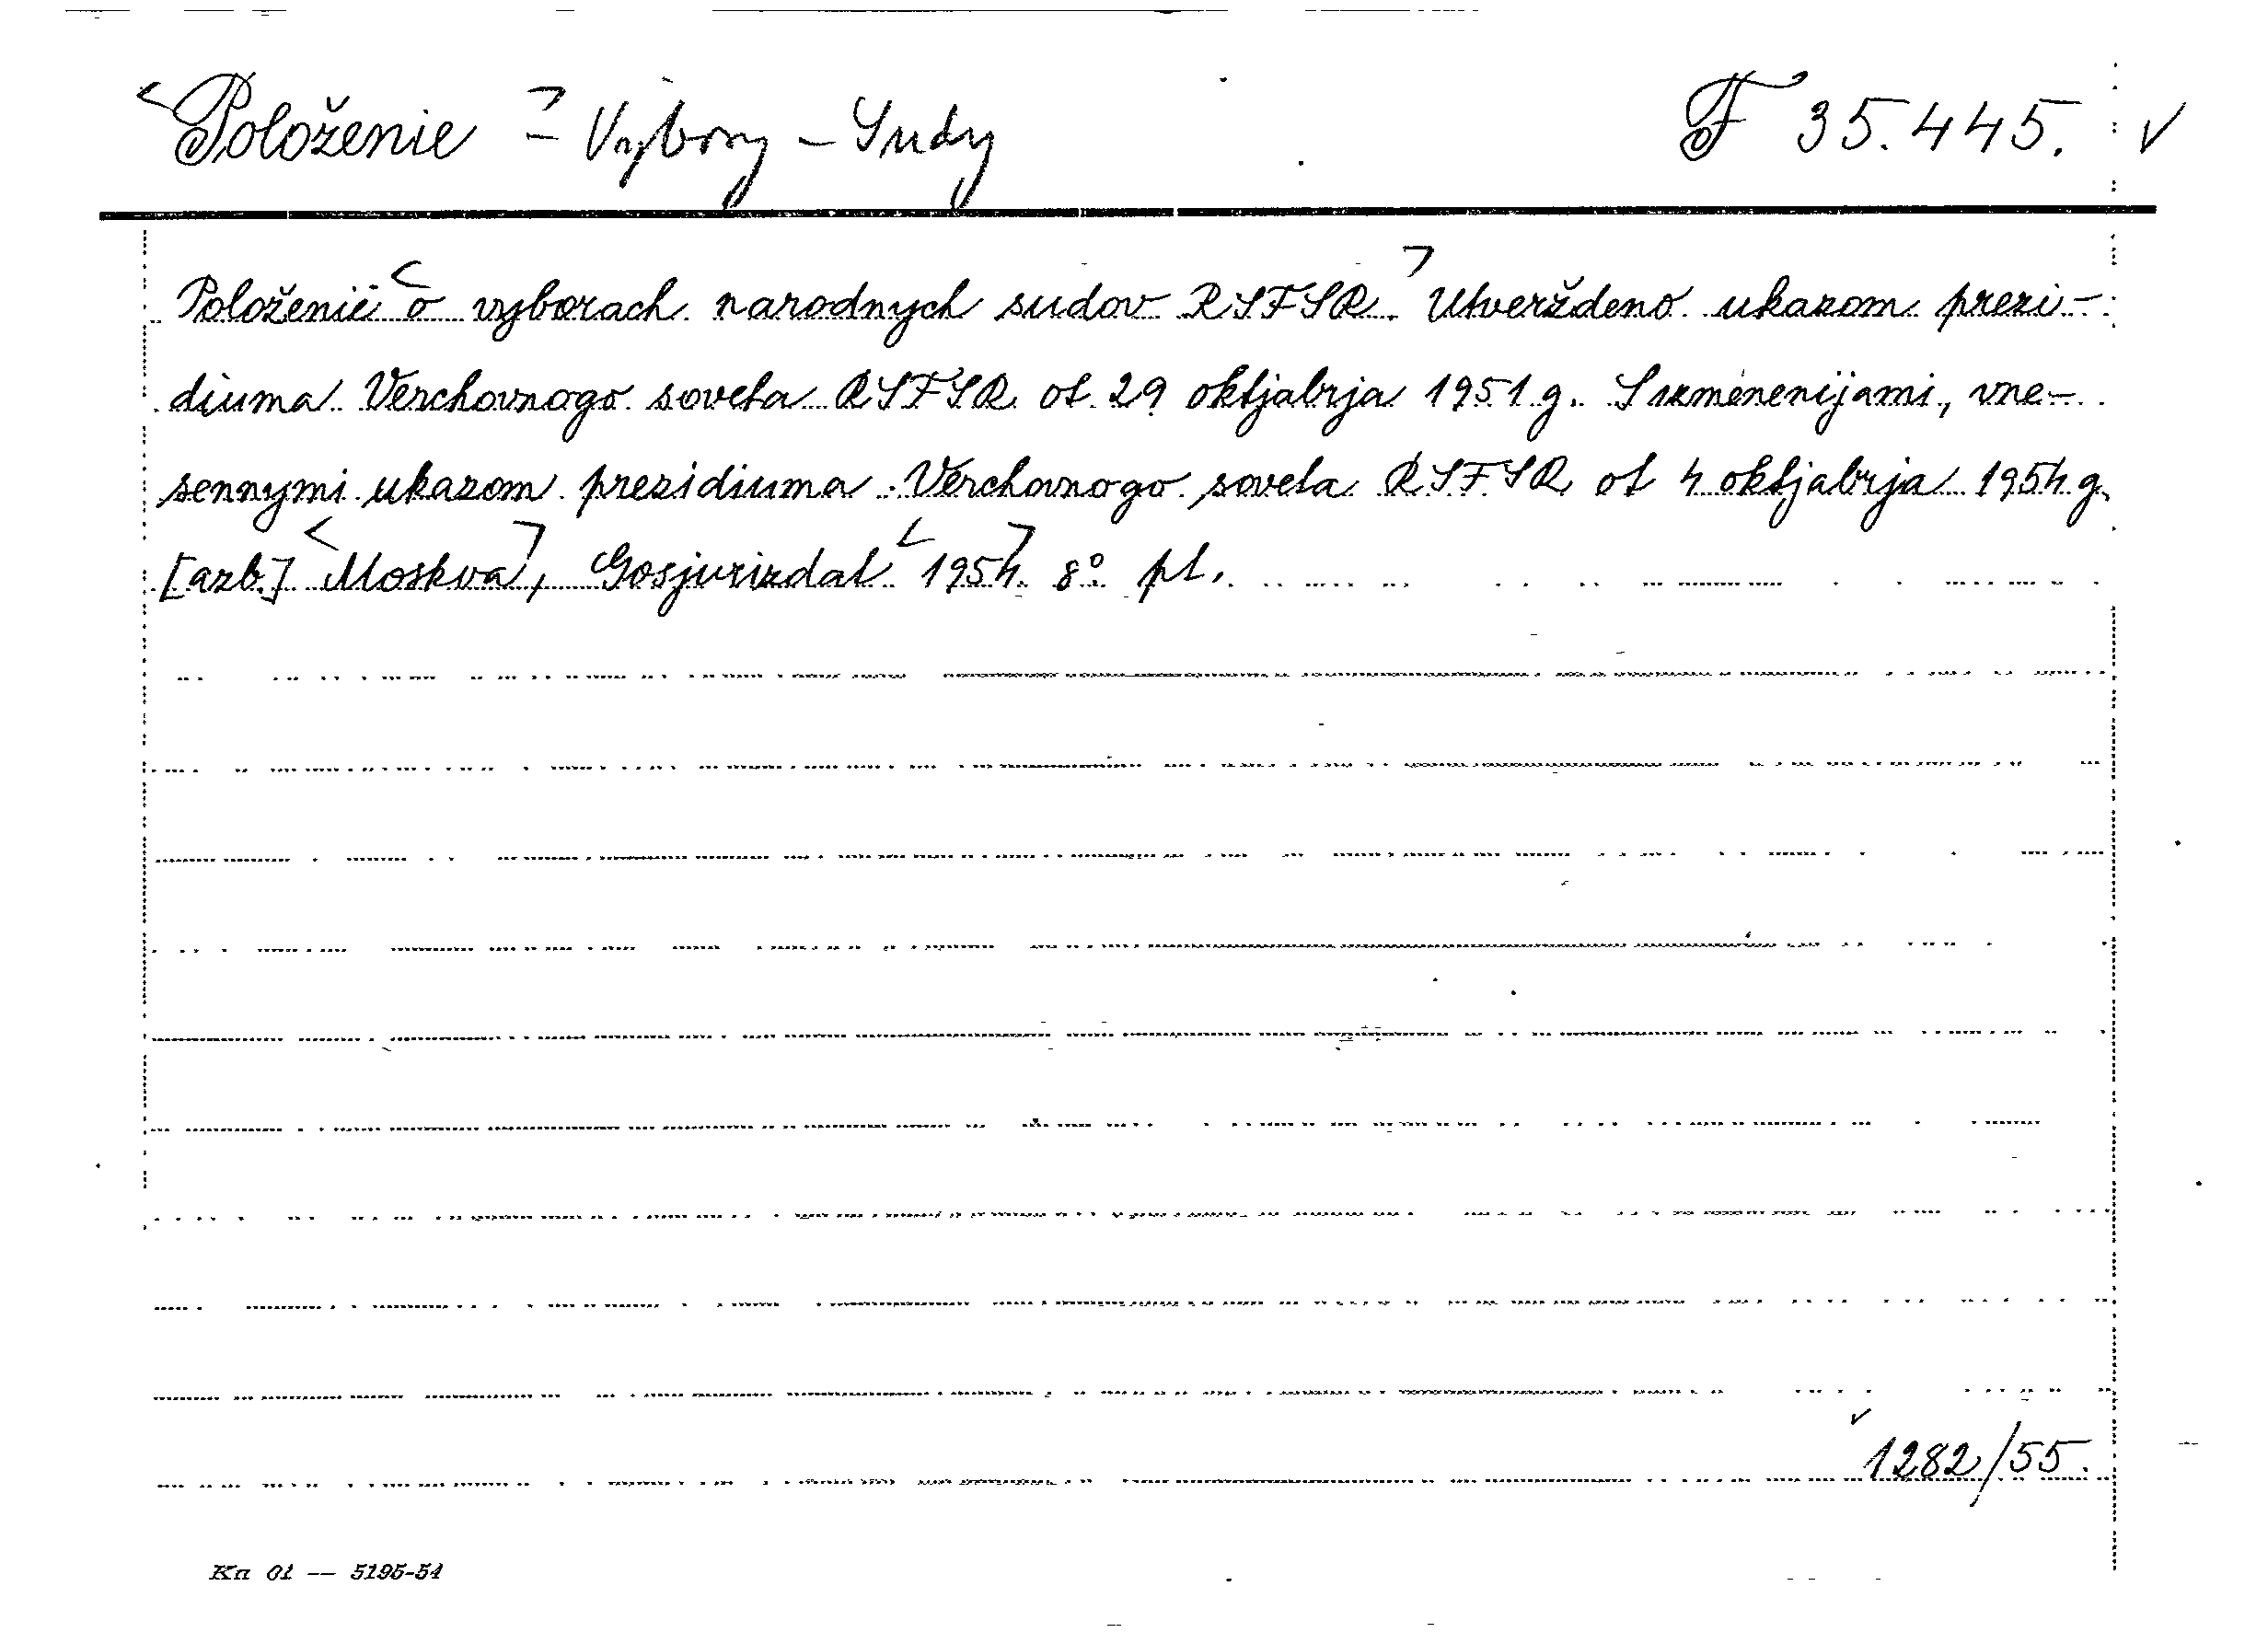 <Položenie> - Vybory - Sudy F 35.445. ✓
Položenie <o vyborach narodnych sudov RSFSR.> Utverždeno ukazom prezi-
diuma Verchovnogo soveta RSFSR ot 29 oktjabrja 1951 g. S izmenenijami, vne-
sennymi ukazom prezidiuma Verchovnogo soveta RSFSR ot 4 oktjabrja 1954 g.
[azb.] <Moskva>, Gosjurizdat <1954.> 8° pt.
1282/55.
Kn 01 — 5195-54